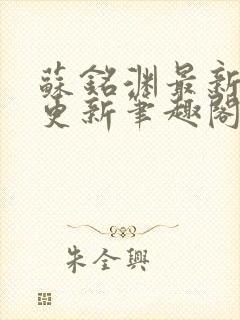 蘇銘淵最新
更新筆趣閣
朱全興